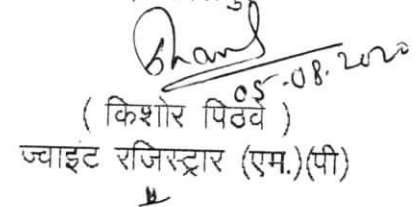 05.08.2020
( किशोर पिठवे )
ज्वाइंट रजिस्ट्रार (एम.)(पी)